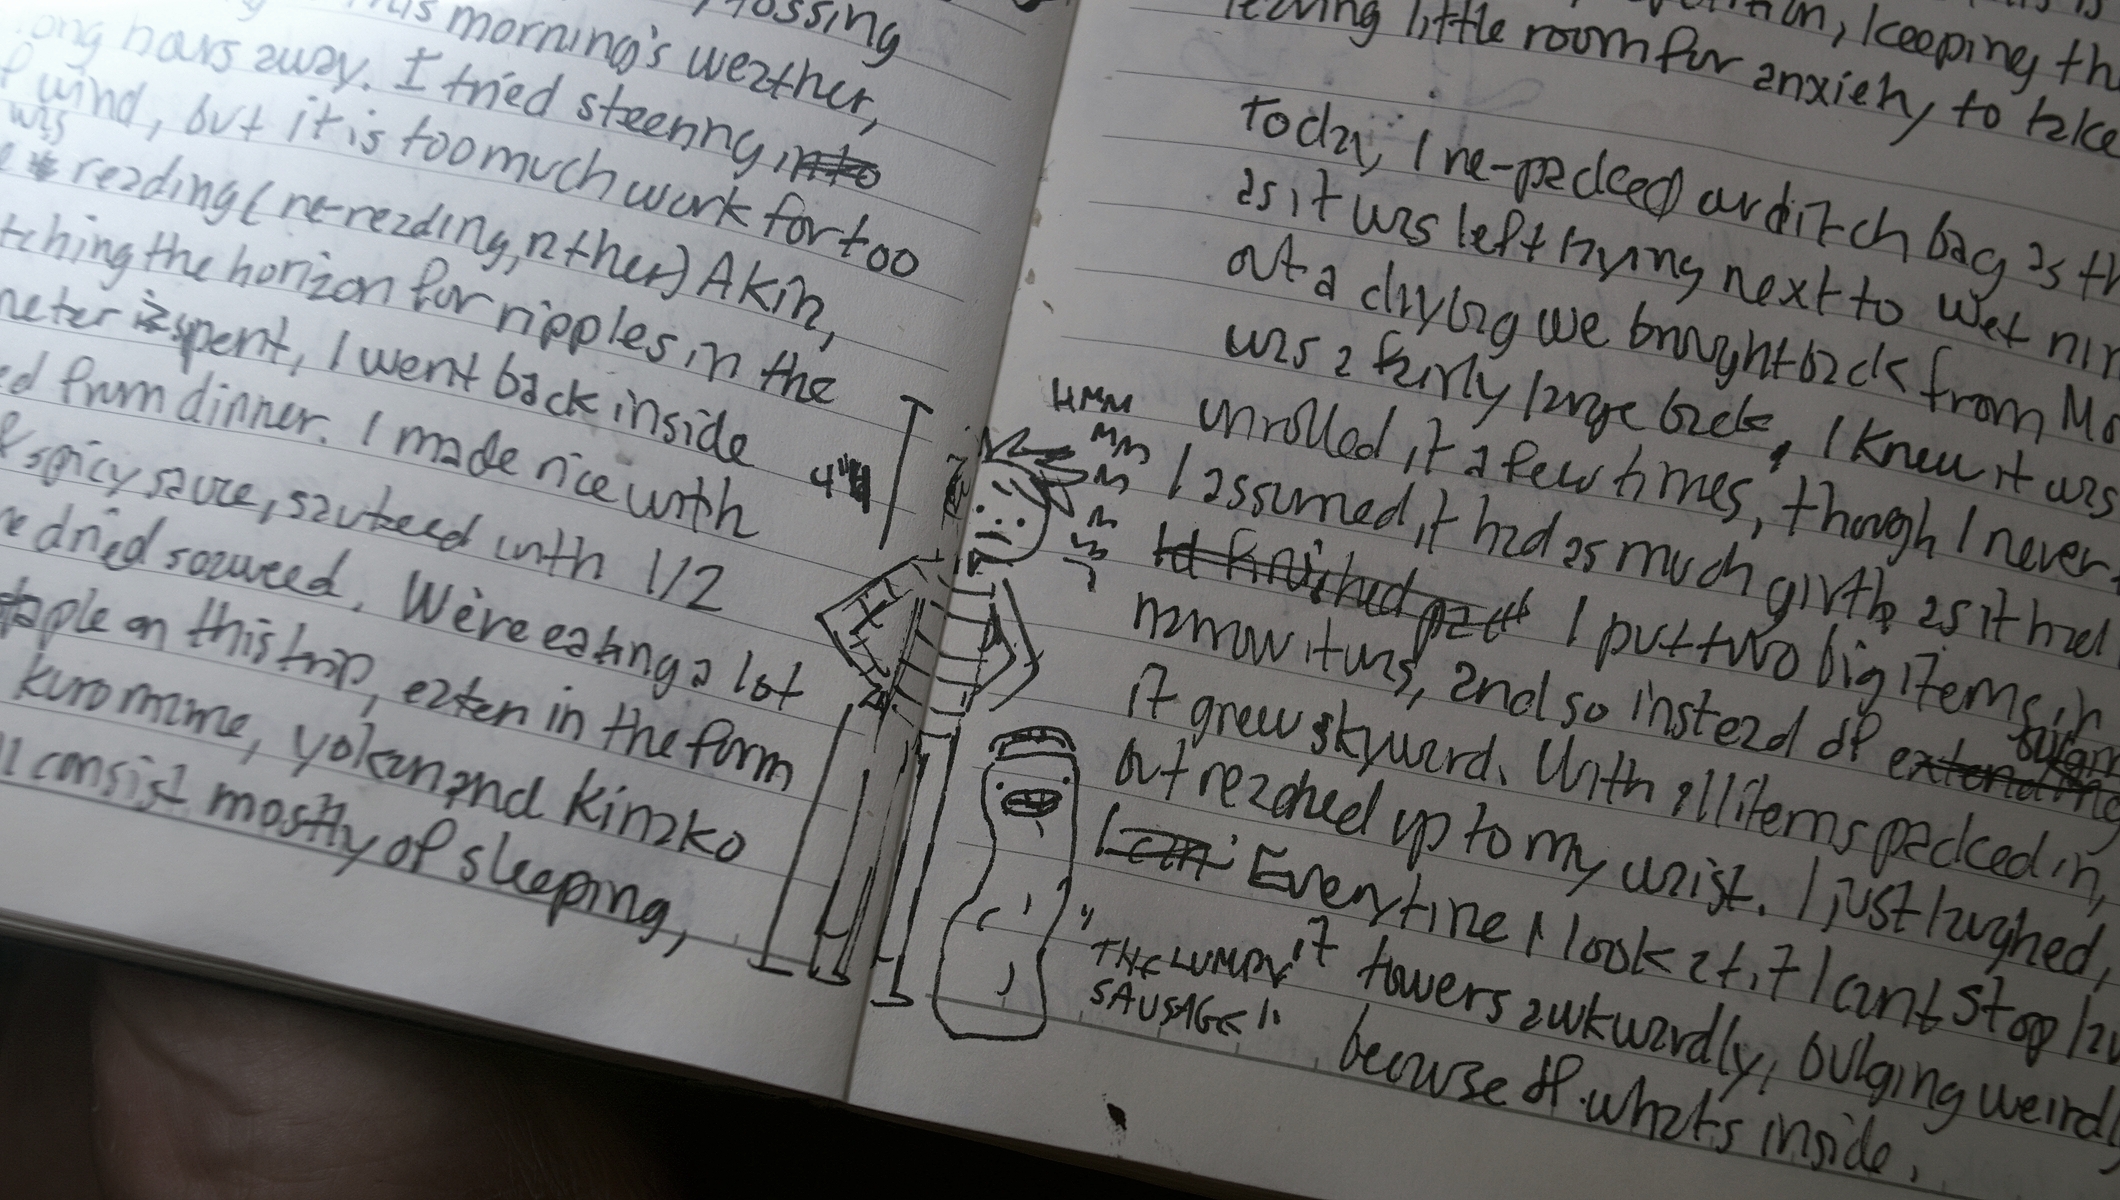 tossing
this morning's weather,
long hours away. I tried steering into
of wind, but it is too much work for too
was
reading (re-reading, rather) Akin,
the horizon for ripples in the
is spent, I went back inside
from dinner. I made rice with
& spicy sauce, sauteed with 1/2
dried seaweed. We're eating a lot
on this trip, eaten in the form
kuromame, yokan and kinako
consist mostly of sleeping,
4"
HMM
MM
M
M
M
"THE LUMPY
SAUSAGE".
keeping
leaving little room for anxiety to take
Today, I re-packed our ditch bag as
as it was left lying next to wet
out a drybag we brought back from
was a fairly large back, I knew it was
unrolled it a few times, though I never
I assumed it had as much girth as it had
I'd finished I put two big items in
narrow it was, and so instead of extending
bulging
it grew skyward. With all items packed in,
but reached up to my waist. I just laughed,
I can Everytime I look at it I cant stop
it towers awkwardly, bulging weirdly
because of what's inside.